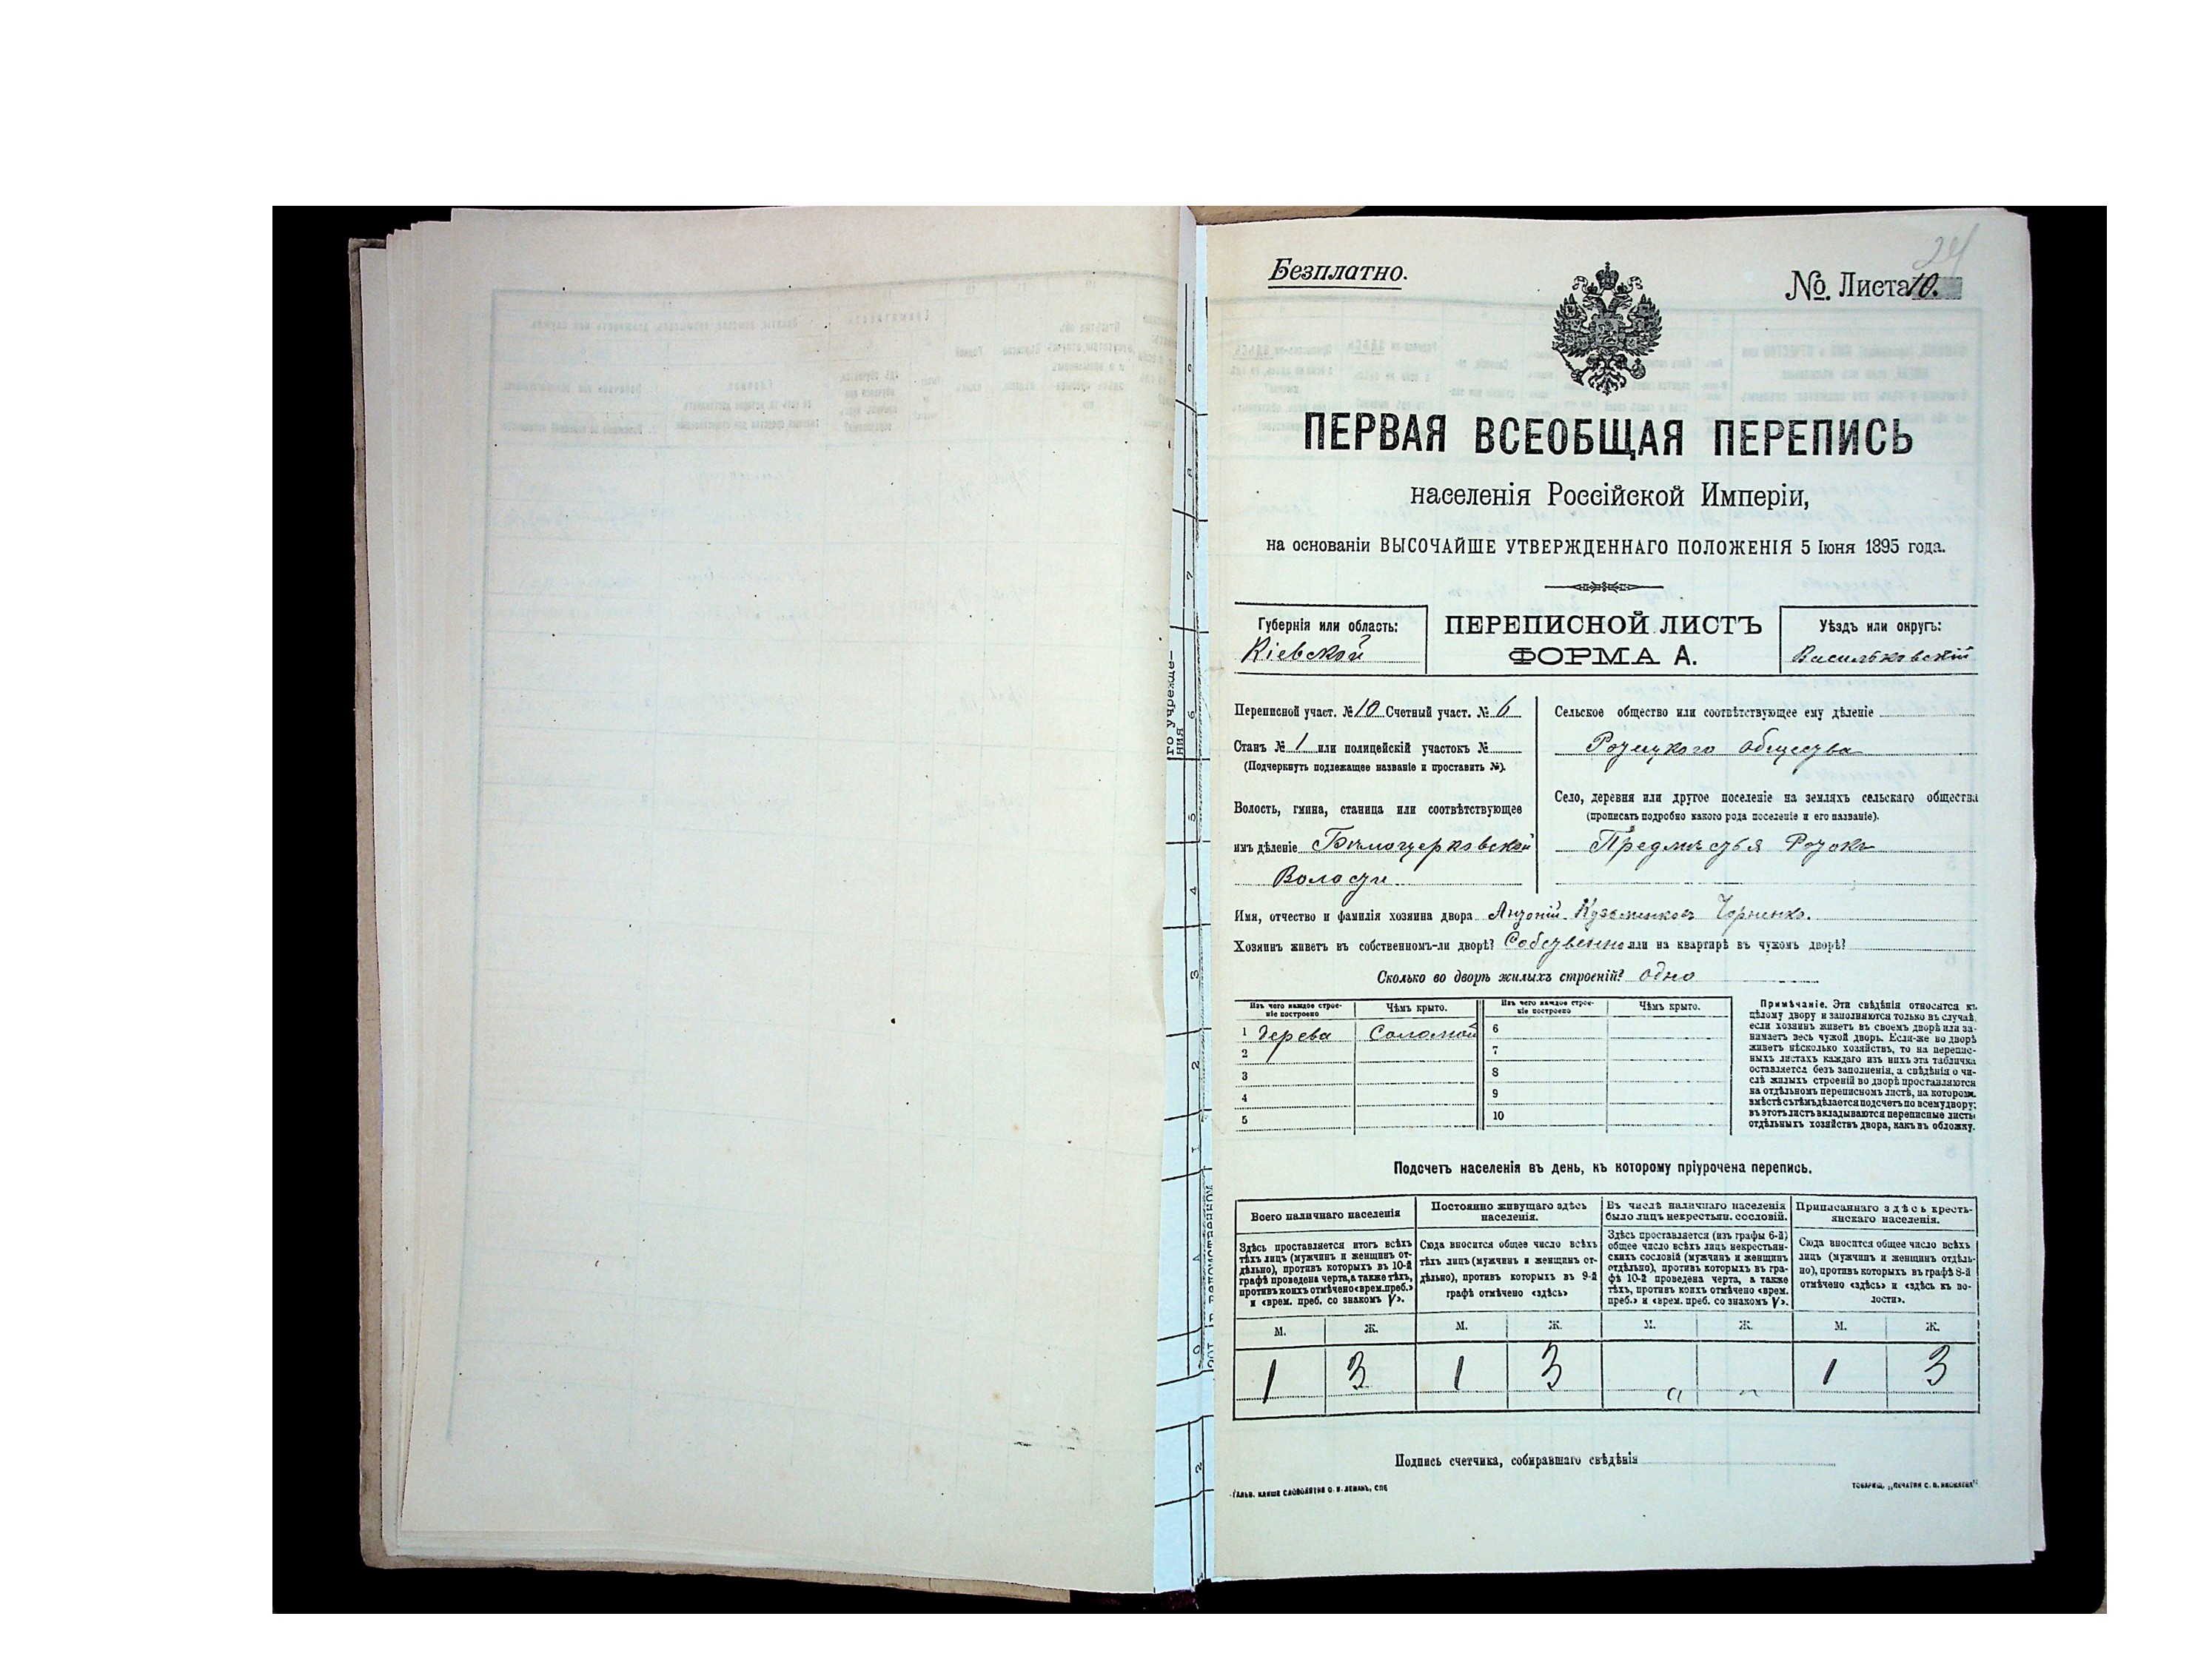 24
Безплатно.
№. Листа 10.
ПЕРВАЯ ВСЕОБЩАЯ ПЕРЕПИСЬ
населенія Россійской Имперіи,
на основаніи ВЫСОЧАЙШЕ УТВЕРЖДЕННАГО ПОЛОЖЕНІЯ 5 Іюня 1895 года.
Губернія или область:
Кіевской
ПЕРЕПИСНОЙ ЛИСТЪ
ФОРМА А.
Уѣздъ или округъ:
Васильковскій
Переписной участ. № 10 Счетный участ. № 6
Станъ № 1 или полицейскій участокъ №
(Подчеркнуть подлежащее названіе и проставить №).
Волость, гмина, станица или соотвѣтствующее
имъ дѣленіе Бѣлоцерковской
Волости
Сельское общество или соотвѣтствующее ему дѣленіе
Ротецкого общества
Село, деревня или другое поселеніе на земляхъ сельскаго общества
(прописать подробно какого рода поселеніе и его названіе).
Предмѣстья Ротокъ
Имя, отчество и фамилія хозяина двора Антоній Черненко.
Хозяинъ живетъ въ собственномъ-ли дворѣ? Собственно или на квартирѣ въ чужомъ дворѣ?
Сколько во дворѣ жилыхъ строеній? одно
Изъ чего каждое строе-
ніе построено
Чѣмъ крыто.
Изъ чего каждое строе-
ніе построено
Чѣмъ крыто.
1 дерева Соломой 6
2 7
3 8
4 9
5 10
Примѣчаніе. Эти свѣдѣнія относятся къ
цѣлому двору и заполняются только въ случаѣ,
если хозяинъ живетъ въ своемъ дворѣ или за-
нимаетъ весь чужой дворъ. Если-же во дворѣ
живетъ нѣсколько хозяйствъ, то на перепис-
ныхъ листахъ каждаго изъ нихъ эта табличка
оставляется безъ заполненія, а свѣдѣнія о чи-
слѣ жилыхъ строеній во дворѣ проставляются
на отдѣльномъ переписномъ листѣ, на которомъ
вмѣстѣ съ тѣмъ дѣлается подсчетъ по всему двору;
въ этотъ листъ вкладываются переписные листы
отдѣльныхъ хозяйствъ двора, какъ въ обложку.
Подсчетъ населенія въ день, къ которому пріурочена перепись.
Всего наличнаго населенія
Здѣсь проставляется итогъ всѣхъ
тѣхъ лицъ (мужчинъ и женщинъ от-
дѣльно), противъ которыхъ въ 10-й
графѣ проведена черта, а также тѣхъ,
противъ коихъ отмѣчено «врем. преб.»
и «врем. преб. со знакомъ V».
Постоянно живущаго здѣсь
населенія.
Сюда вносится общее число всѣхъ
тѣхъ лицъ (мужчинъ и женщинъ от-
дѣльно), противъ которыхъ въ 9-й
графѣ отмѣчено «здѣсь»
Въ числѣ наличнаго населенія
было лицъ некрестьян. сословій.
Здѣсь проставляется (изъ графы 6-й)
общее число всѣхъ лицъ некрестьян-
скихъ сословій (мужчинъ и женщинъ
отдѣльно), противъ которыхъ въ гра-
фѣ 10-й проведена черта, а также
тѣхъ, противъ коихъ отмѣчено «врем.
преб.» и «врем. преб. со знакомъ V».
Приписаннаго здѣсь кресть-
янскаго населенія.
Сюда вносится общее число всѣхъ
лицъ (мужчинъ и женщинъ отдѣль-
но), противъ которыхъ въ графѣ 8-й
отмѣчено «здѣсь» и «здѣсь къ во-
лости».
М. Ж. М. Ж. М. Ж. М. Ж.
1 3 1 3 „ „ 1 3
Подпись счетчика, собиравшаго свѣдѣнія
ГАЛЬВ. КЛИШЕ СЛОВОЛИТНЯ О. И. ЛЕМАНЪ, СПБ
ТОВАРИЩ. „ПЕЧАТНЯ С. П. ЯКОВЛЕВА"